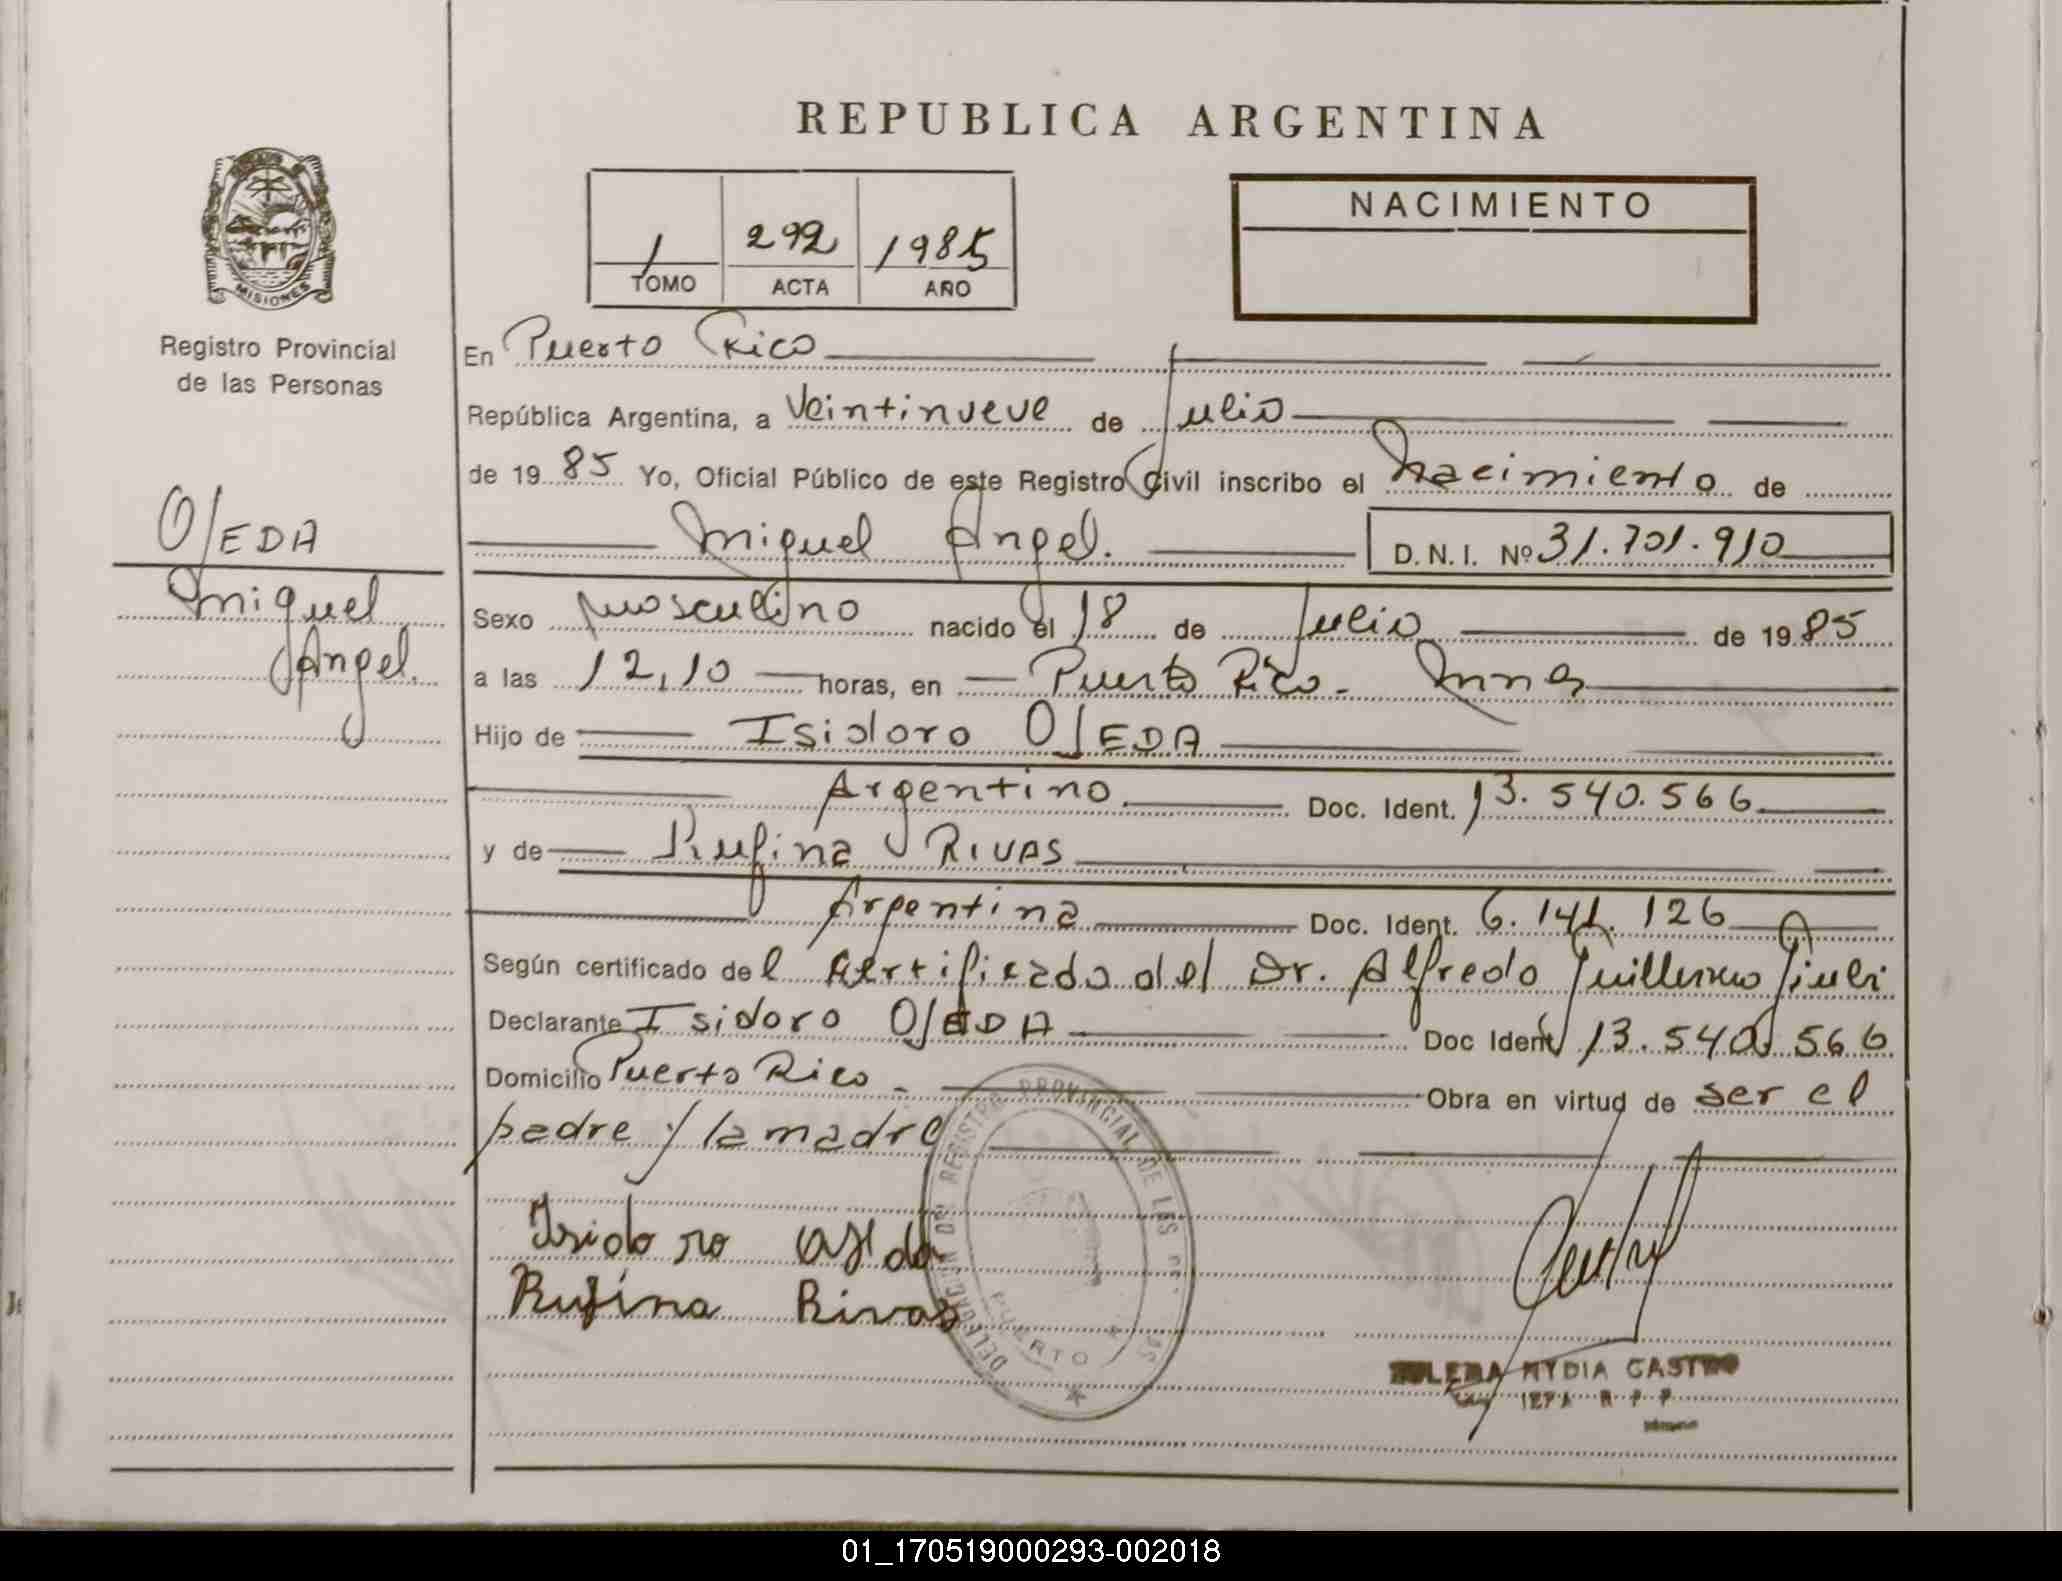 REPUBLICA ARGENTINA
MISIONES
Registro Provincial
de las Personas
1 292 1985
TOMO ACTA AÑO
NACIMIENTO
OJEDA
Miguel
Angel.
En Puerto Rico
República Argentina, a Veintinueve de Julio
de 19 85 Yo, Oficial Público de este Registro Civil inscribo el Nacimiento de
Miguel Angel. D.N.I. Nº 31.701.910
Sexo Masculino nacido el 18 de Julio de 19 85
a las 12,10 horas, en Puerto Rico - Mnes
Hijo de Isidoro OJEDA
Argentino Doc. Ident. 13.540.566
y de Rufina RIVAS
Argentina Doc. Ident. 6.141.126
Según certificado del Certificado del Dr. Alfredo Guillermo
Declarante Isidoro OJEDA Doc Ident 13.540.566
Domicilio Puerto Rico - Obra en virtud de ser el
padre y la madre
Isidoro
Rufina Rivas
DELEGACION DEL REGISTRO PROVINCIAL DE LAS
PUERTO
NYDIA CASTRO
01_170519000293-002018